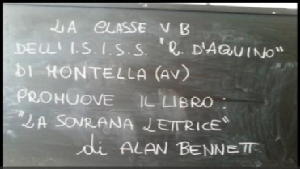 LA CLASSE V B
DELL' I.S.I.S.S. "R. D'AQUINO"
DI MONTELLA (AV)
PROMUOVE IL LIBRO:
"LA SOVRANA LETTRICE"
di ALAN BENNETT